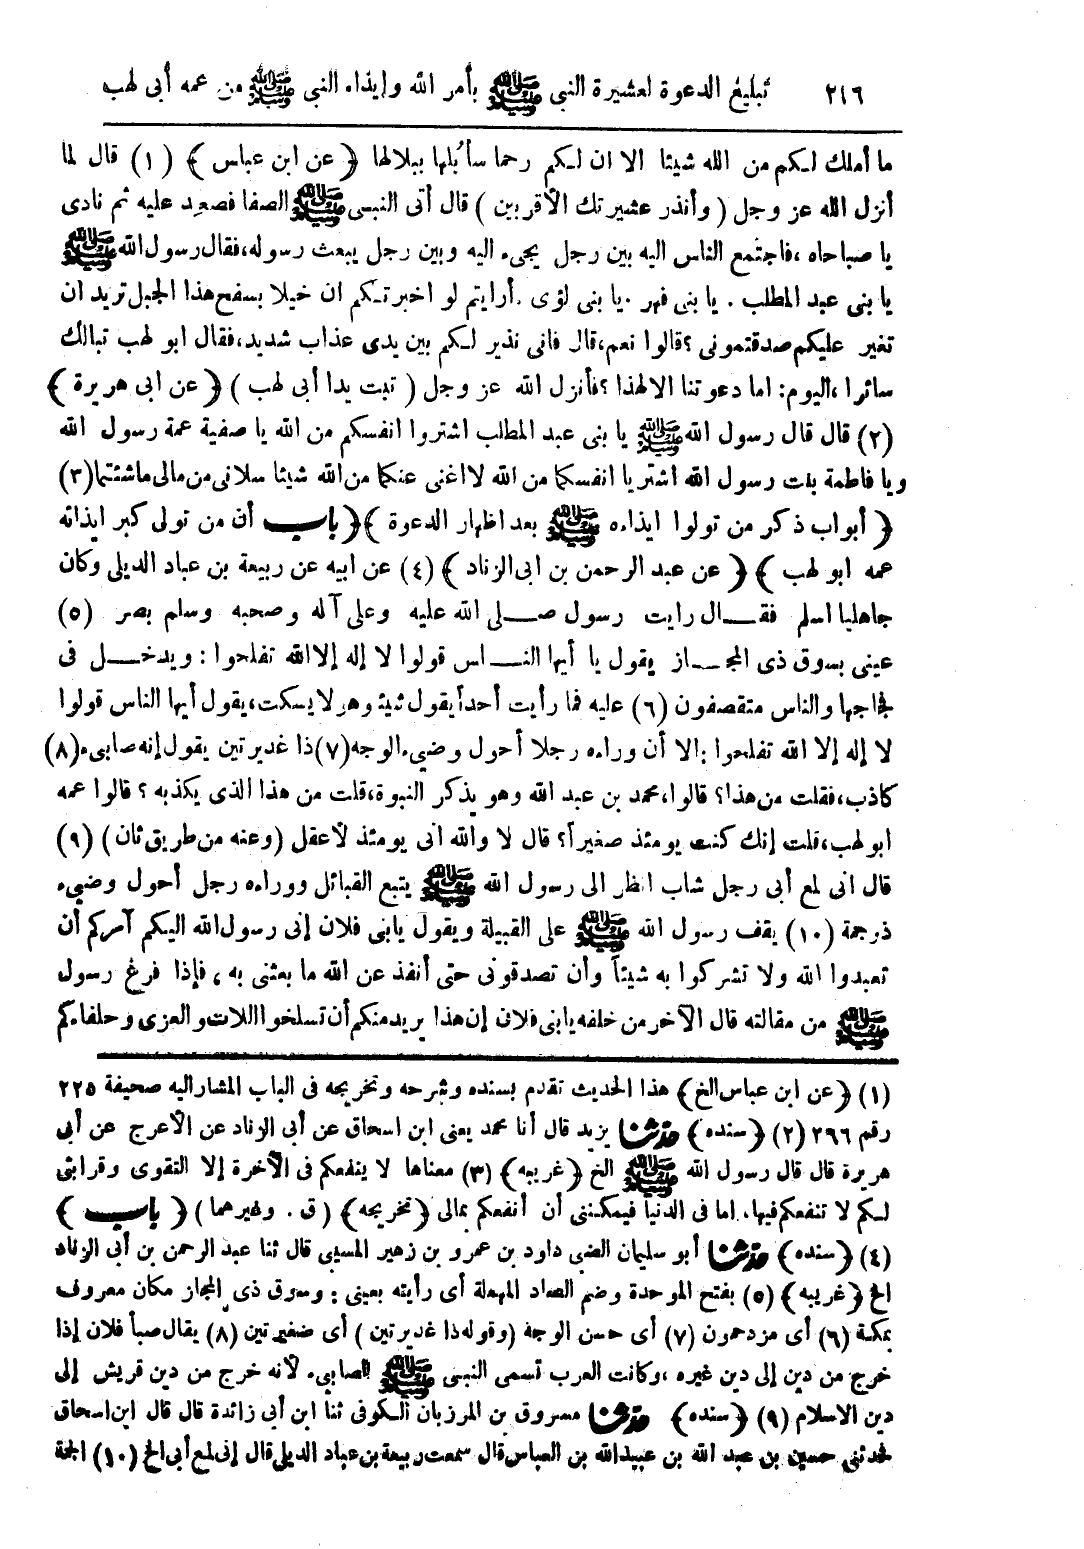 ٢١٦ تبليغ الدعوة لعشيرة النبى ﷺ بأمر الله وإيذاء النبى ﷺ من عمه أبى لهب
ما أملك لكم من الله شيئا الا ان لكم رحما سأبُلها ببلالها ﴿ عن ابن عباس ﴾ (١) قال لما
أنزل الله عز وجل ( وأنذر عشيرتك الأقربين ) قال أتى النبى ﷺ الصفا فصعد عليه ثم نادى
يا صباحاه ،فاجتمع الناس اليه بين رجل يجىء اليه وبين رجل يبعث رسوله،فقال رسول الله ﷺ
يا بنى عبد المطلب . يا بنى فهر .يا بنى لؤى .أرايتم لو اخبرتكم ان خيلا بسفح هذا الجبل تريد ان
تغير عليكم صدقتمونى ؟قالوا نعم،قال فانى نذير لكم بين يدى عذاب شديد،فقال ابو لهب تبالك
سائرا ،اليوم: اما دعوتنا الا لهذا ؟فأنزل الله عز وجل ( تبت يدا أبى لهب ) ﴿ عن ابى هريرة ﴾
(٢) قال قال رسول الله ﷺ يا بنى عبد المطلب اشتروا انفسكم من الله يا صفية عمة رسول الله
ويا فاطمة بنت رسول الله اشتريا انفسكما من الله لا اغنى عنكما من الله شيئا سلانى من مالى ما شئتما (٣)
﴿ أبواب ذكر من تولوا ايذاءه ﷺ بعد اظهار الدعوة ﴾ ﴿ باب أن من تولى كبر ايذائه
عمه ابو لهب ﴾ ﴿ عن عبد الرحمن بن ابى الزناد ﴾ (٤) عن ابيه عن ربيعة بن عباد الديلى وكان
جاهليا اسلم فقال رايت رسول صلى الله عليه وعلى آله وصحبه وسلم بصر (٥)
عينى بسوق ذى المجاز يقول يا أيها الناس قولوا لا إله إلا الله تفلحوا : ويدخل فى
فجاجها والناس متقصفون (٦) عليه فما رأيت أحداً يقول شيئا وهو لا يسكت،يقول أيها الناس قولوا
لا إله إلا الله تفلحوا :الا أن وراءه رجلا أحول وضىء الوجه (٧) ذا غديرتين يقول إنه صابىء (٨)
كاذب،فقلت من هذا؟ قالوا،محمد بن عبد الله وهو يذكر النبوة،قلت من هذا الذى يكذبه ؟ قالوا عمه
ابو لهب،قلت إنك كنت يومئذ صغيراً؟ قال لا والله انى يومئذ لأعقل (وعنه من طريق ثان ) (٩)
قال انى لمع أبى رجل شاب انظر الى رسول الله ﷺ يتبع القبائل ووراءه رجل أحول وضىء
ذو جمة (١٠) يقف رسول الله ﷺ على القبيلة ويقول يا بنى فلان إنى رسول الله اليكم آمركم أن
تعبدوا الله ولا تشركوا به شيئاً وأن تصدقونى حتى أنفذ عن الله ما بعثنى به ، فإذا فرغ رسول
ﷺ من مقالته قال الآخر من خلفه يا بنى فلان إن هذا يريد منكم أن تسلخوا اللات والعزى وحلفاءكم
(١) ﴿ عن ابن عباس الخ ﴾ هذا الحديث تقدم بسنده وشرحه وتخريجه فى الباب المشار اليه صحيفة ٢٢٥
رقم ٢٩٦ (٢) ﴿ سنده ﴾ حدثنا يزيد قال أنا محمد يعنى ابن اسحاق عن أبى الزناد عن الأعرج عن أبى
هريرة قال قال رسول الله ﷺ الخ ﴿ غريبه ﴾ (٣) معناها لا ينفعكم فى الآخرة إلا التقوى وقرابتى
لكم لا تنفعكم فيها، اما فى الدنيا فيمكننى أن أنفعكم بمالى ﴿ تخريجه ﴾ ( ق . وغيرهما ) ﴿ باب ﴾
(٤) ﴿ سنده ﴾ حدثنا أبو سليمان الضبى داود بن عمرو بن زهير المسيبى قال ثنا عبد الرحمن بن أبى الزناد
الخ ﴿ غريبه ﴾ (٥) بفتح الموحدة وضم الصاد المهملة أى رأيته بعينى : وسوق ذى المجاز مكان معروف
بمكة (٦) أى مزدحمون (٧) أى حسن الوجه ( وقوله ذا غديرتين ) أى ضفيرتين (٨) يقال صبأ فلان إذا
خرج من دين إلى دين غيره ،وكانت العرب تسمى النبى ﷺ الصابىء لأنه خرج من دين قريش إلى
دين الاسلام (٩) ﴿ سنده ﴾ حدثنا مسروق بن المرزبان الكوفى ثنا ابن أبى زائدة قال قال ابن اسحاق
فحدثنى حسين بن عبد الله بن عبيد الله بن العباس قال سمعت ربيعة بن عباد الديلى قال إنى لمع أبى الخ (١٠) الجمة